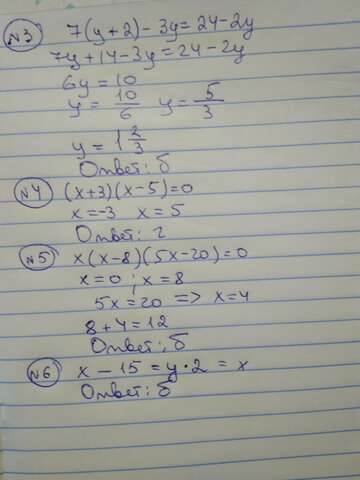 №3 7(y+2)-3y=24-2y
7y+14-3y=24-2y
6y=10
y=10/6 y=5/3
y=1 2/3
Ответ: б
№4 (x+3)(x-5)=0
x=-3 x=5
Ответ: г
№5 x(x-8)(5x-20)=0
x=0; x=8
5x=20 => x=4
8+4=12
Ответ: б
№6 x-15=y·2=x
Ответ: б